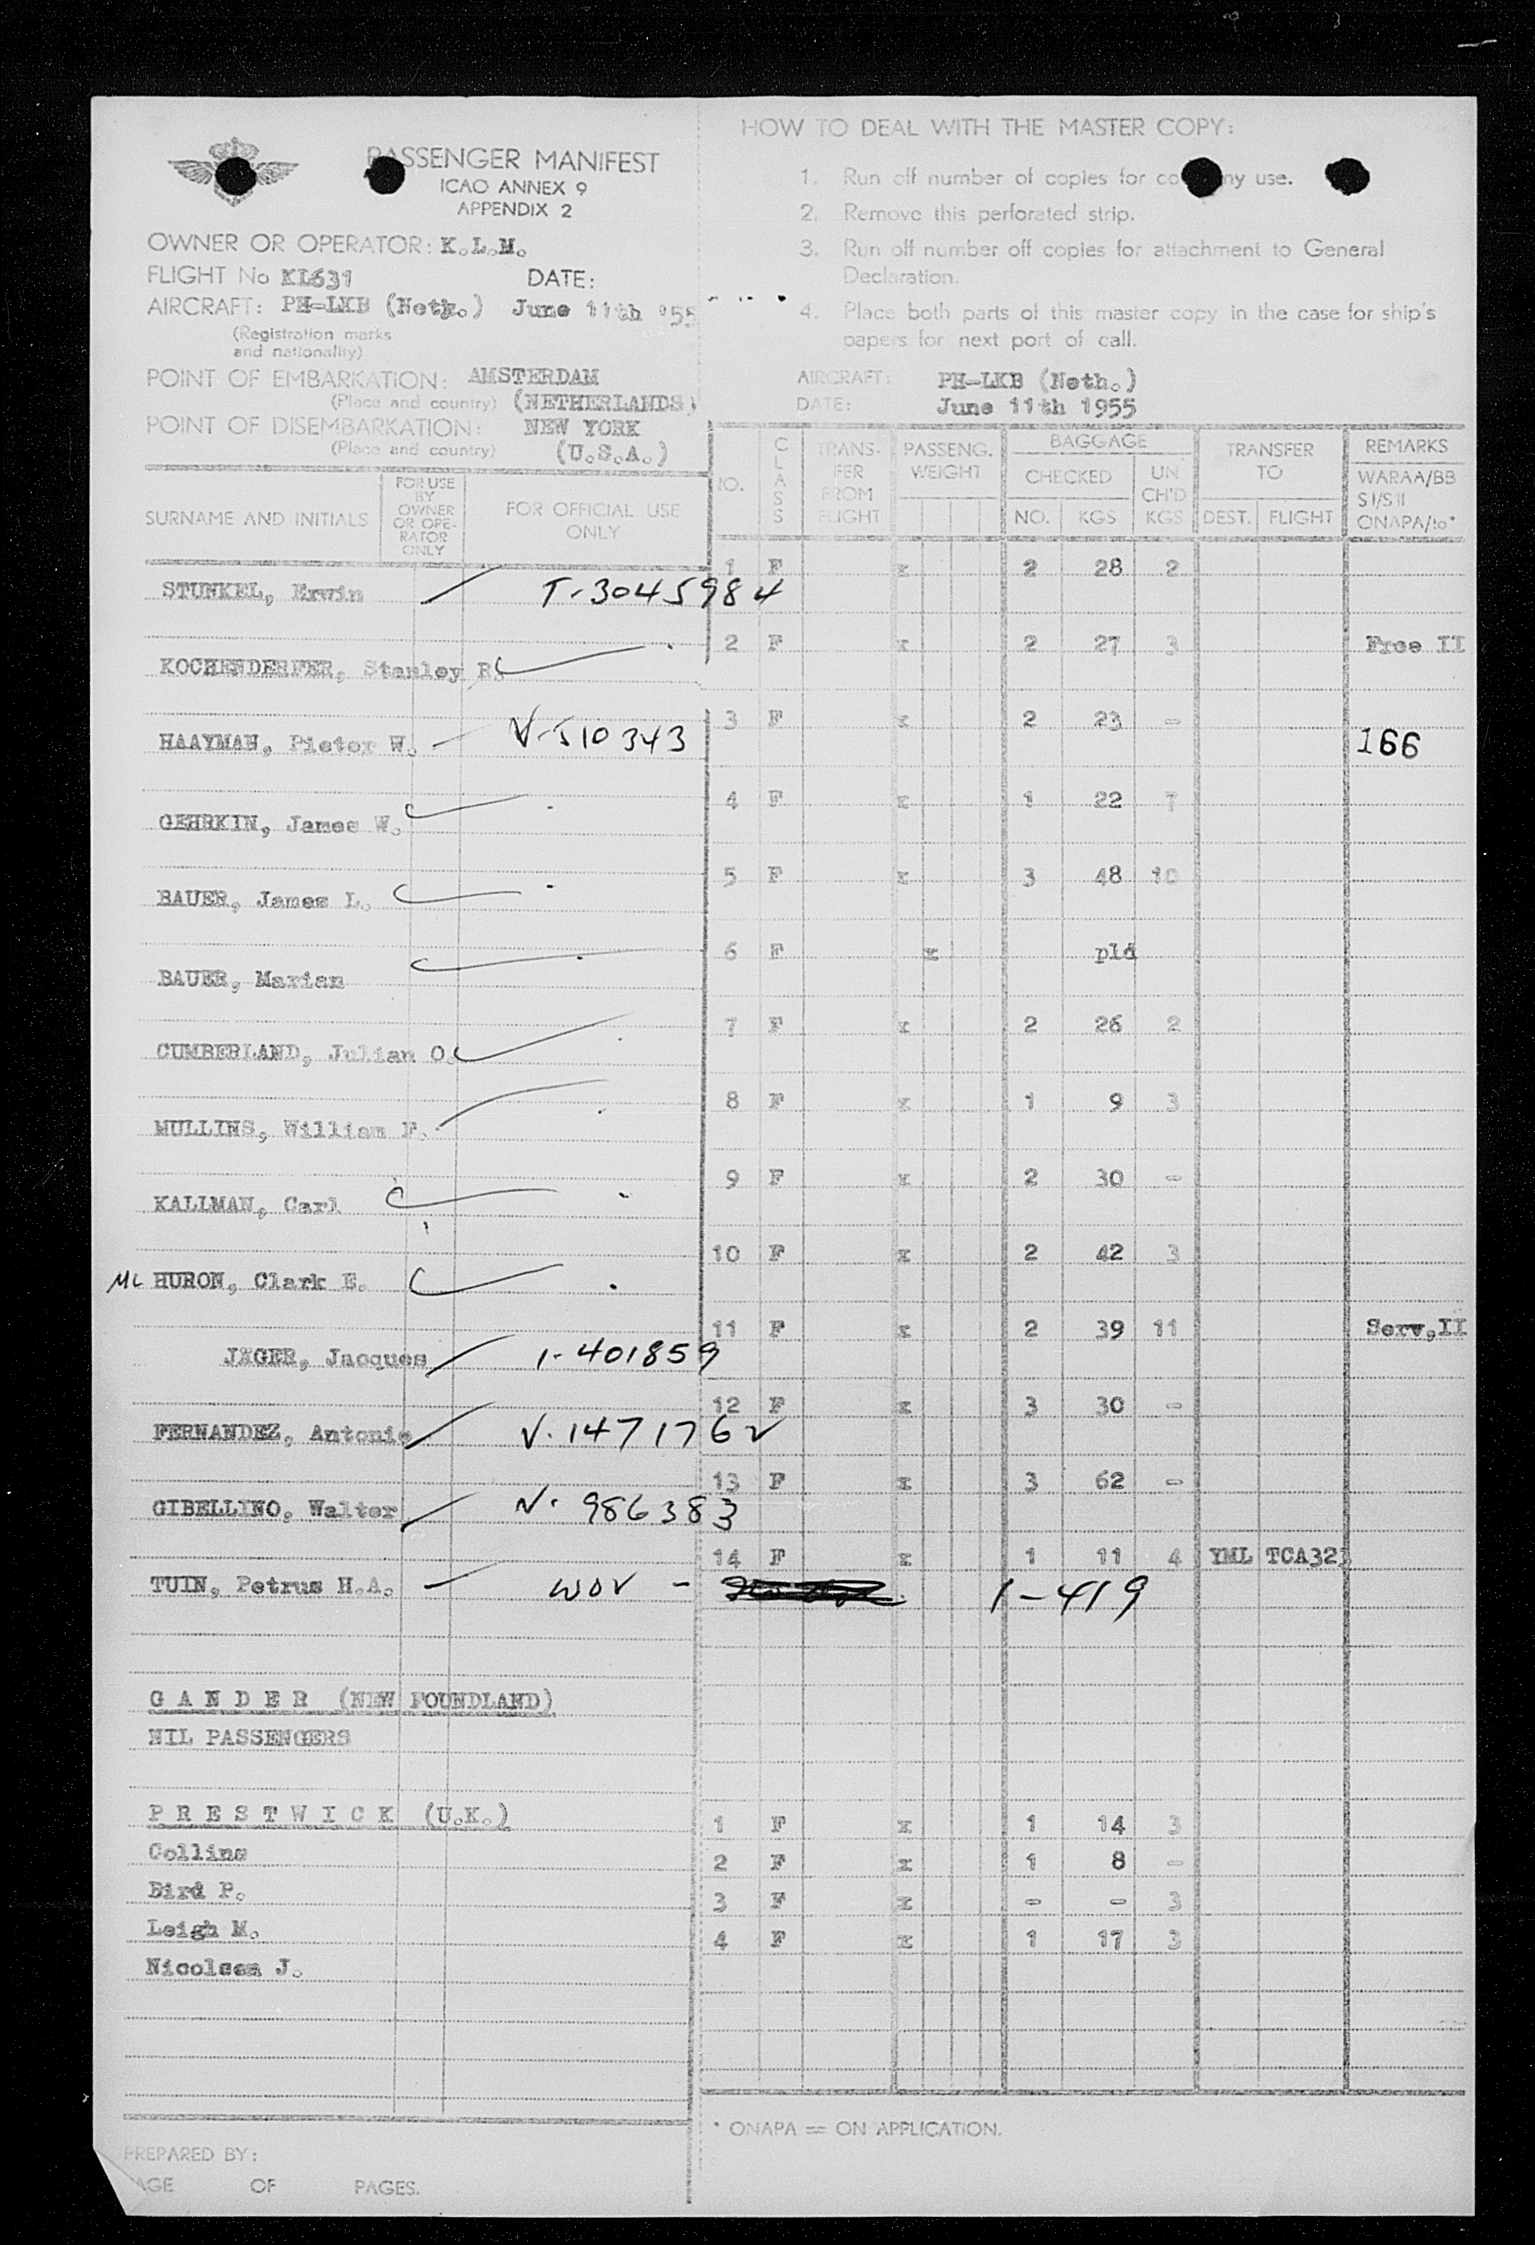 PASSENGER MANIFEST
ICAO ANNEX 9
APPENDIX 2
OWNER OR OPERATOR: K.L.M.
FLIGHT No KL631 DATE:
AIRCRAFT: PH-LKB (Neth.) June 11th '55
(Registration marks
and nationality)
POINT OF EMBARKATION: AMSTERDAM
(Place and country) (NETHERLANDS)
POINT OF DISEMBARKATION: NEW YORK
(Place and country) (U.S.A.)
HOW TO DEAL WITH THE MASTER COPY:
1. Run off number of copies for company use.
2. Remove this perforated strip.
3. Run off number off copies for attachment to General
Declaration.
4. Place both parts of this master copy in the case for ship's
papers for next port of call.
AIRCRAFT: PH-LKB (Neth.)
DATE: June 11th 1955
SURNAME AND INITIALS
FOR USE
BY
OWNER
OR OPE-
RATOR
ONLY
FOR OFFICIAL USE
ONLY
NO.
CLASS
TRANS-
FER
FROM
FLIGHT
PASSENG.
WEIGHT
BAGGAGE
CHECKED
NO. KGS
UN
CH'D
KGS
TRANSFER
TO
DEST. FLIGHT
REMARKS
WARAA/BB
SI/SII
ONAPA/to*
1 F x 2 28 2
STUNKEL, Erwin T-3045984
2 F x 2 27 3 Free II
KOCHENDERFER, Stanley R.
3 F x 2 23 -
HAAYMAN, Pieter W. V-510343 166
4 F x 1 22 7
GEHRKIN, James W.
5 F x 3 48 10
BAUER, James L.
6 F x pld
BAUER, Marian
7 F x 2 26 2
CUMBERLAND, Julian O.
8 F x 1 9 3
MULLINS, William F.
9 F x 2 30 -
KALLMAN, Carl
10 F x 2 42 3
Mc HURON, Clark E.
11 F x 2 39 11 Serv,II
JÄGER, Jacques 1-401859
12 F x 3 30 -
FERNANDEZ, Antonio V-1471762
13 F x 3 62 -
GIBELLINO, Walter V-986383
14 F x 1 11 4 YML TCA321
TUIN, Petrus H.A. WOV - 1-419
GANDER (NEW FOUNDLAND)
NIL PASSENGERS
PRESTWICK (U.K.)
1 F x 1 14 3
Collins
2 F x 1 8 -
Bird P.
3 F x - - 3
Leigh M.
4 F x 1 17 3
Nicolson J.
* ONAPA = ON APPLICATION.
PREPARED BY:
PAGE OF PAGES.